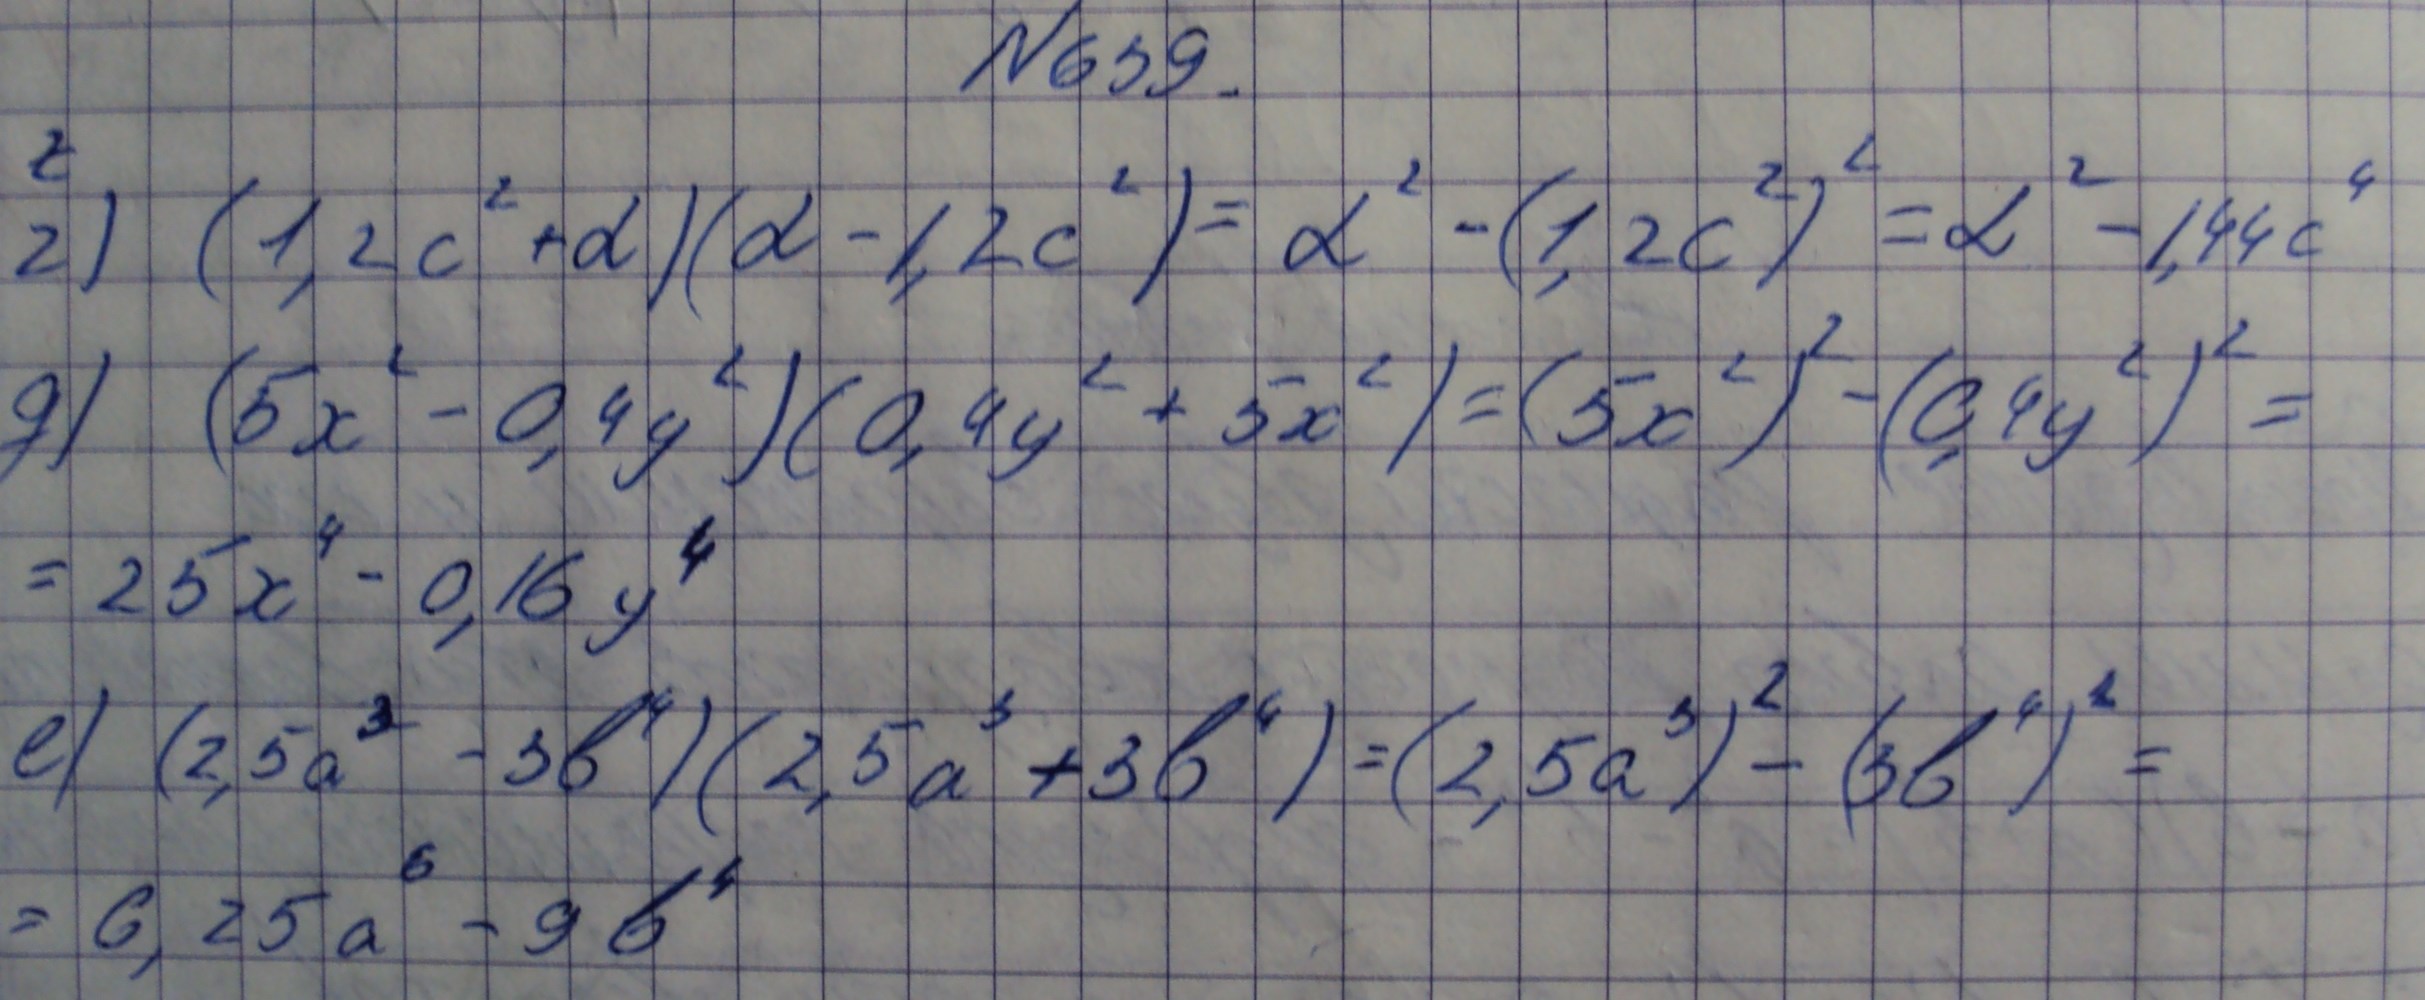 №639.
г
г) (1,2c²+d)(d-1,2c²)=d²-(1,2c²)²=d²-1,44c⁴
д) (5x²-0,4y²)(0,4y²+5x²)=(5x²)²-(0,4y²)²=
=25x⁴-0,16y⁴
е) (2,5a³-3b⁴)(2,5a³+3b⁴)=(2,5a³)²-(3b⁴)²=
=6,25a⁶-9b⁴